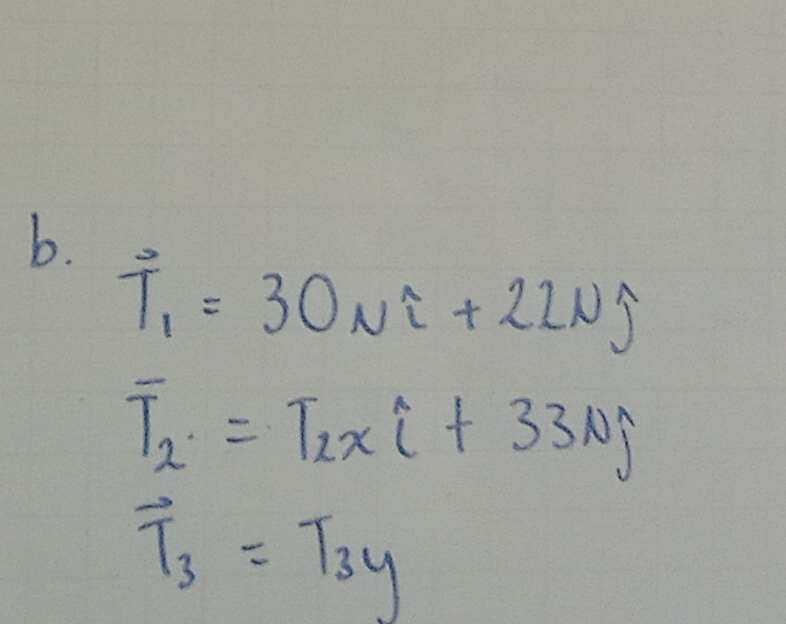 b.
T⃗₁ = 30N î + 22N ĵ
T̄₂ = T₂ₓ î + 33N ĵ
T⃗₃ = T₃y